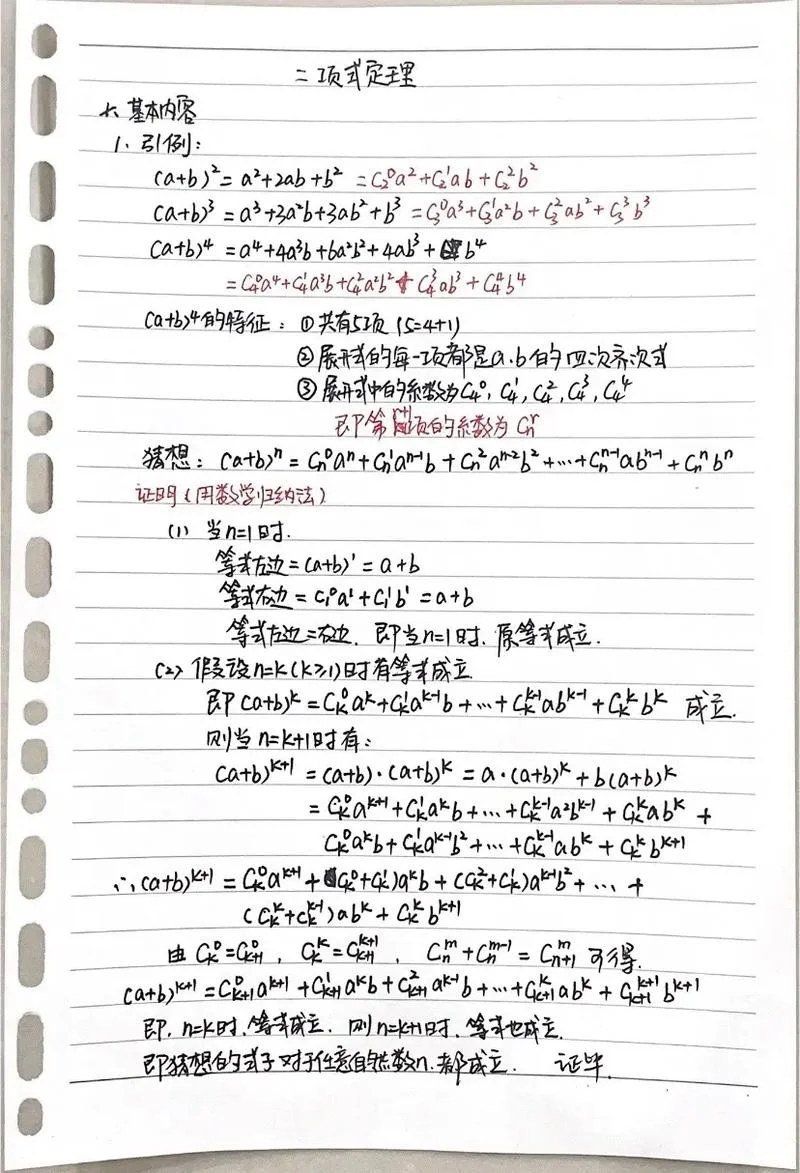 二项式定理
一、基本内容
1、引例：
(a+b)² = a²+2ab+b² = C₂⁰a²+C₂¹ab+C₂²b²
(a+b)³ = a³+3a²b+3ab²+b³ = C₃⁰a³+C₃¹a²b+C₃²ab²+C₃³b³
(a+b)⁴ = a⁴+4a³b+6a²b²+4ab³+b⁴
= C₄⁰a⁴+C₄¹a³b+C₄²a²b²+C₄³ab³+C₄⁴b⁴
(a+b)⁴的特征：①共有5项（5=4+1）
②展开式的每一项都是a、b的四次齐次式
③展开式中的系数为C₄⁰, C₄¹, C₄², C₄³, C₄⁴
即第r+1项的系数为Cₙʳ
猜想：(a+b)ⁿ = Cₙ⁰aⁿ+Cₙ¹aⁿ⁻¹b+Cₙ²aⁿ⁻²b²+…+Cₙⁿ⁻¹abⁿ⁻¹+Cₙⁿbⁿ
证明（用数学归纳法）
(1) 当n=1时.
等式左边=(a+b)¹=a+b
等式右边=C₁⁰a¹+C₁¹b¹=a+b
等式左边=右边. 即当n=1时. 原等式成立.
(2) 假设n=k(k≥1)时有等式成立
即(a+b)ᵏ=Cₖ⁰aᵏ+Cₖ¹aᵏ⁻¹b+…+Cₖᵏ⁻¹abᵏ⁻¹+Cₖᵏbᵏ 成立.
则当n=k+1时有：
(a+b)ᵏ⁺¹=(a+b)·(a+b)ᵏ=a·(a+b)ᵏ+b(a+b)ᵏ
=Cₖ⁰aᵏ⁺¹+Cₖ¹aᵏb+…+Cₖᵏ⁻¹a²bᵏ⁻¹+Cₖᵏabᵏ+
Cₖ⁰aᵏb+Cₖ¹aᵏ⁻¹b²+…+Cₖᵏ⁻¹abᵏ+Cₖᵏbᵏ⁺¹
∴(a+b)ᵏ⁺¹=Cₖ⁰aᵏ⁺¹+(Cₖ⁰+Cₖ¹)aᵏb+(Cₖ²+Cₖ¹)aᵏ⁻¹b²+…+
(Cₖᵏ+Cₖᵏ⁻¹)abᵏ+Cₖᵏbᵏ⁺¹
由Cₖ⁰=Cₖ₊₁⁰, Cₖᵏ=Cₖ₊₁ᵏ⁺¹, Cₙᵐ+Cₙᵐ⁻¹=Cₙ₊₁ᵐ 可得.
(a+b)ᵏ⁺¹=Cₖ₊₁⁰aᵏ⁺¹+Cₖ₊₁¹aᵏb+Cₖ₊₁²aᵏ⁻¹b²+…+Cₖ₊₁ᵏabᵏ+Cₖ₊₁ᵏ⁺¹bᵏ⁺¹
即. n=k时. 等式成立. 则n=k+1时. 等式也成立.
即猜想的式子对于任意自然数n. 都成立. 证毕.